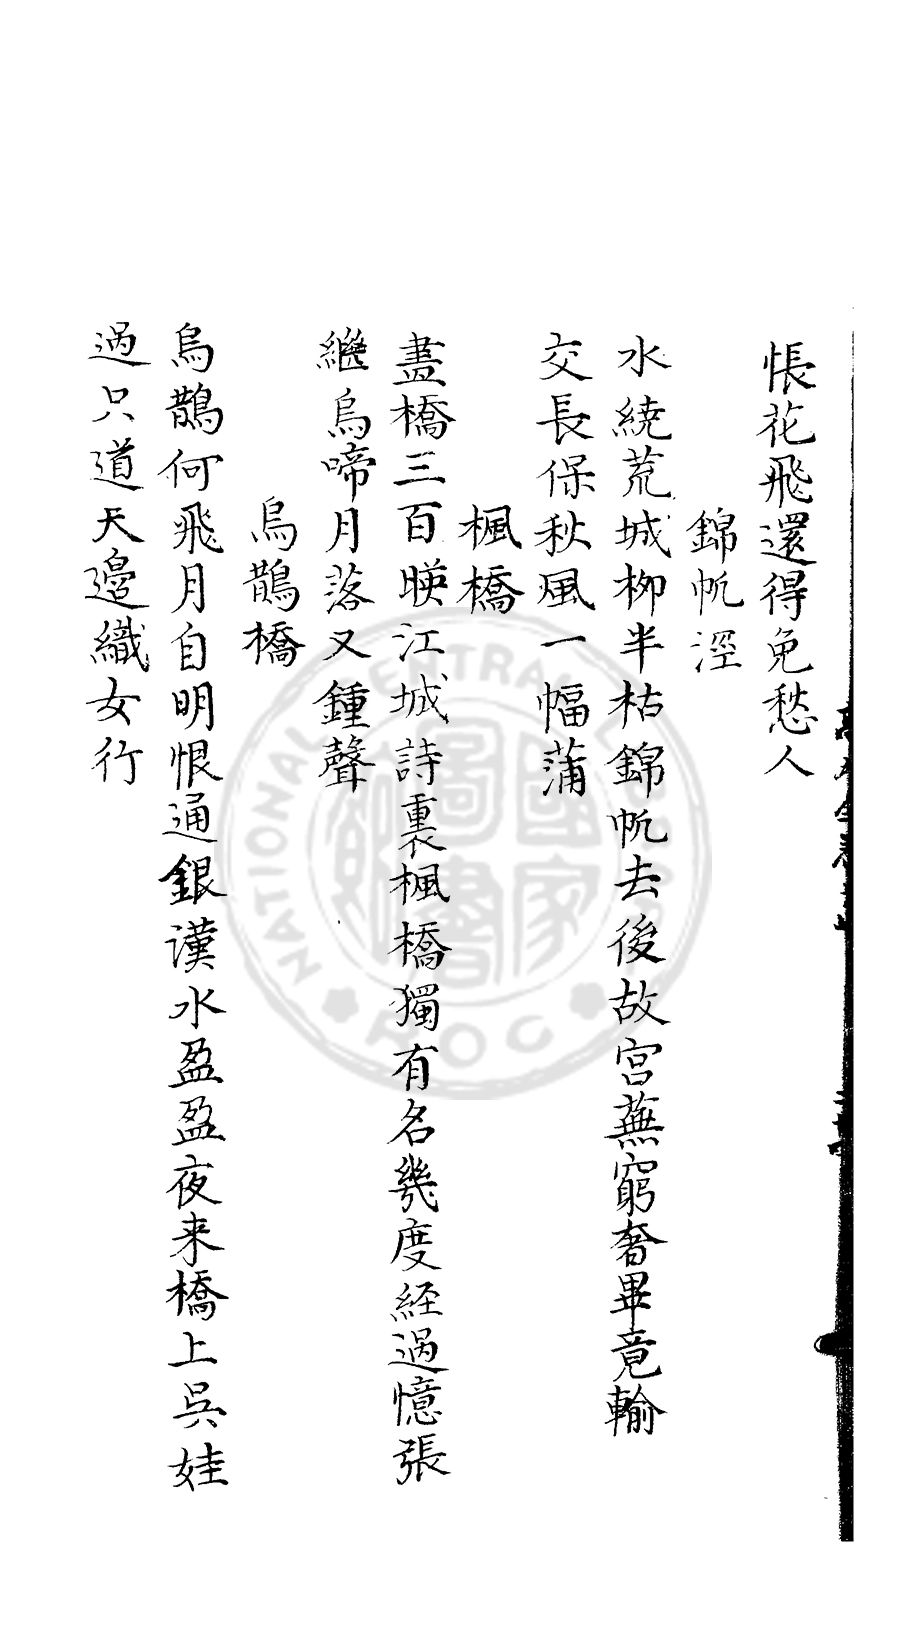 悵花飛還得免愁人
錦帆涇
水繞荒城柳半枯錦帆去後故宮蕪窮奢畢竟輸
交長保秋風一幅蒲
楓橋
畫橋三百暎江城詩裏楓橋獨有名幾度経過憶張
繼烏啼月落又鍾聲
烏鵲橋
烏鵲何飛月自明恨通銀漢水盈盈夜来橋上吳娃
過只道天邊織女行
NATIONAL CENTRAL
ROC
國家圖書